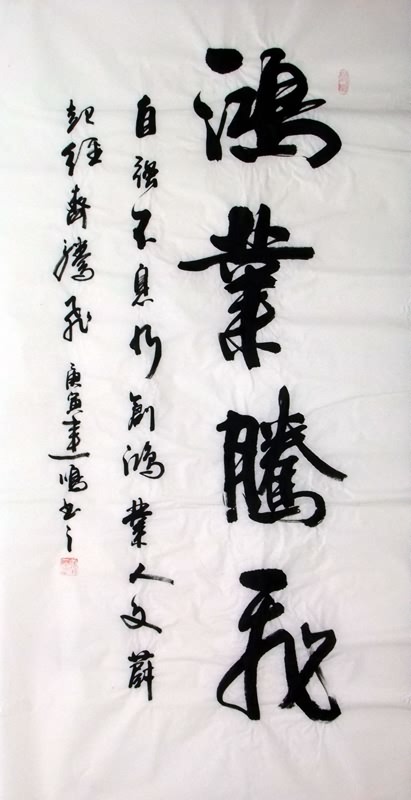 鴻業騰飛
自強不息創鴻業人文蔚
起經齊騰飛 庚寅 建鳴書